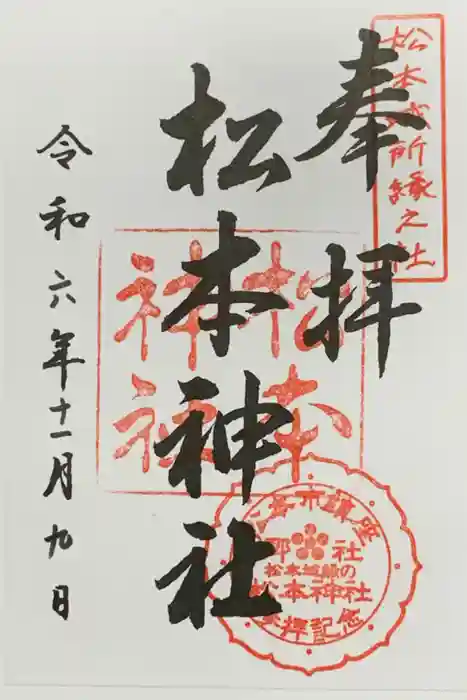 奉拝
松本城所縁之社
松本神社
松本
神社
松本市鎮座
郷社
松本城縁の
松本神社
参拝記念
令和六年十一月九日